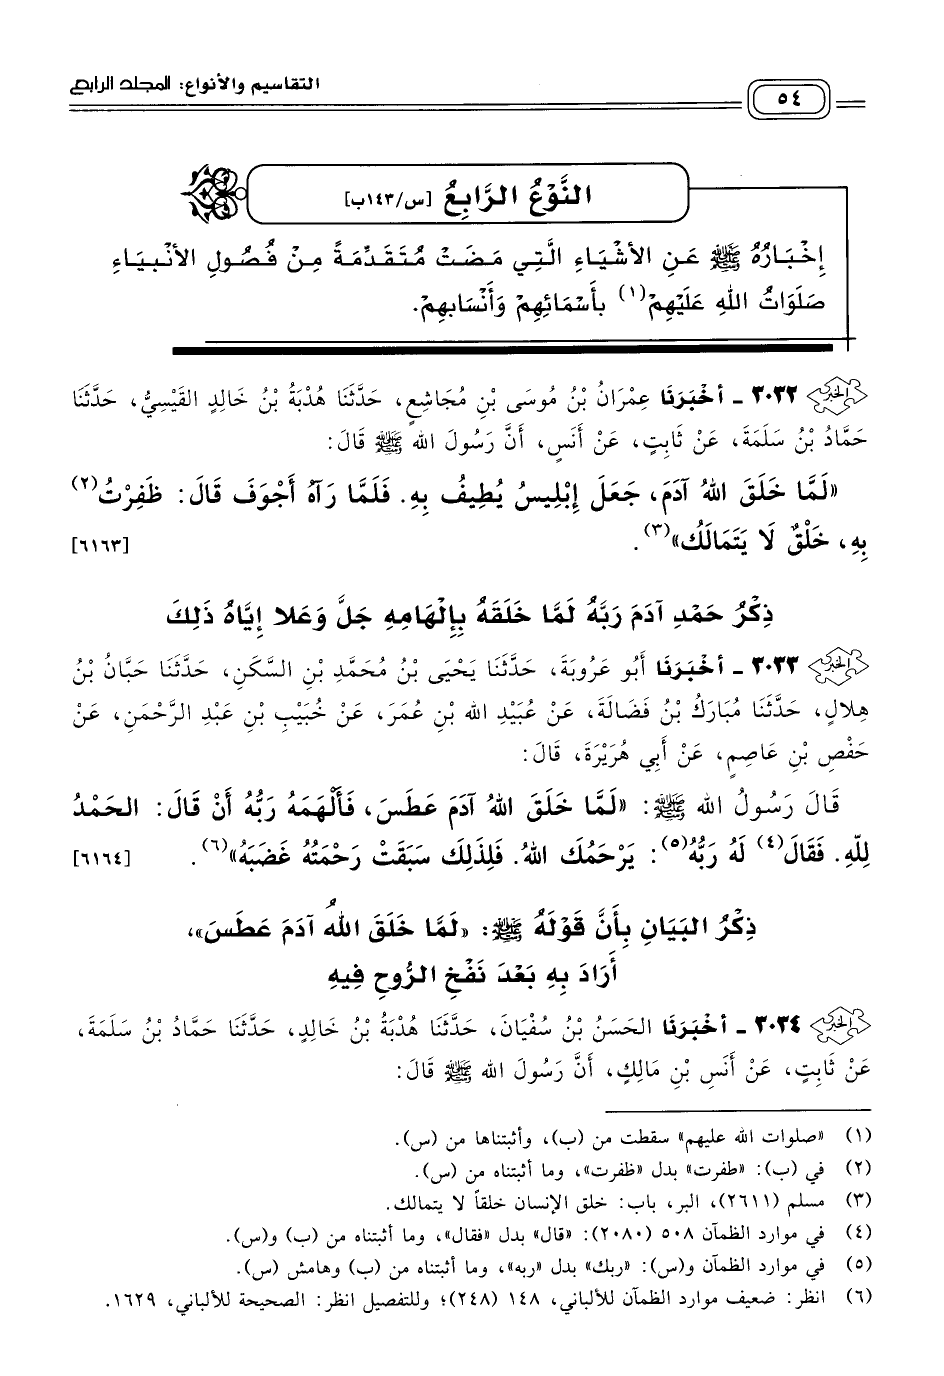 التقاسيم والأنواع: المجلد الرابع
٥٤
النَّوْعُ الرَّابِعُ [س/١٤٣ب]
إِخْبَارُهُ ﷺ عَنِ الأَشْيَاءِ الَّتِي مَضَتْ مُتَقَدِّمَةً مِنْ فُصُولِ الأَنْبِيَاءِ
صَلَوَاتُ اللهِ عَلَيْهِمْ(١) بِأَسْمَائِهِمْ وَأَنْسَابِهِمْ.
٣٠٣٢ - أَخْبَرَنَا عِمْرَانُ بْنُ مُوسَى بْنِ مُجَاشِعٍ، حَدَّثَنَا هُدْبَةُ بْنُ خَالِدٍ القَيْسِيُّ، حَدَّثَنَا
حَمَّادُ بْنُ سَلَمَةَ، عَنْ ثَابِتٍ، عَنْ أَنَسٍ، أَنَّ رَسُولَ اللهِ ﷺ قَالَ:
«لَمَّا خَلَقَ اللهُ آدَمَ، جَعَلَ إِبْلِيسُ يُطِيفُ بِهِ. فَلَمَّا رَآهُ أَجْوَفَ قَالَ: ظَفِرْتُ(٢)
بِهِ، خَلْقٌ لَا يَتَمَالَكُ»(٣). [٦١٦٣]
ذِكْرُ حَمْدِ آدَمَ رَبَّهُ لَمَّا خَلَقَهُ بِإِلْهَامِهِ جَلَّ وَعَلا إِيَّاهُ ذَلِكَ
٣٠٣٣ - أَخْبَرَنَا أَبُو عَرُوبَةَ، حَدَّثَنَا يَحْيَى بْنُ مُحَمَّدِ بْنِ السَّكَنِ، حَدَّثَنَا حَبَّانُ بْنُ
هِلالٍ، حَدَّثَنَا مُبَارَكُ بْنُ فَضَالَةَ، عَنْ عُبَيْدِ اللهِ بْنِ عُمَرَ، عَنْ خُبَيْبِ بْنِ عَبْدِ الرَّحْمَنِ، عَنْ
حَفْصِ بْنِ عَاصِمٍ، عَنْ أَبِي هُرَيْرَةَ، قَالَ:
قَالَ رَسُولُ اللهِ ﷺ: «لَمَّا خَلَقَ اللهُ آدَمَ عَطَسَ، فَأَلْهَمَهُ رَبُّهُ أَنْ قَالَ: الحَمْدُ
لِلّهِ. فَقَالَ(٤) لَهُ رَبُّهُ(٥): يَرْحَمُكَ اللهُ. فَلِذَلِكَ سَبَقَتْ رَحْمَتُهُ غَضَبَهُ»(٦). [٦١٦٤]
ذِكْرُ البَيَانِ بِأَنَّ قَوْلَهُ ﷺ: «لَمَّا خَلَقَ اللهُ آدَمَ عَطَسَ»،
أَرَادَ بِهِ بَعْدَ نَفْخِ الرُّوحِ فِيهِ
٣٠٣٤ - أَخْبَرَنَا الحَسَنُ بْنُ سُفْيَانَ، حَدَّثَنَا هُدْبَةُ بْنُ خَالِدٍ، حَدَّثَنَا حَمَّادُ بْنُ سَلَمَةَ،
عَنْ ثَابِتٍ، عَنْ أَنَسِ بْنِ مَالِكٍ، أَنَّ رَسُولَ اللهِ ﷺ قَالَ:
(١) «صلوات الله عليهم» سقطت من (ب)، وأثبتناها من (س).
(٢) في (ب): «طفرت» بدل «ظفرت»، وما أثبتناه من (س).
(٣) مسلم (٢٦١١)، البر، باب: خلق الإنسان خلقاً لا يتمالك.
(٤) في موارد الظمآن ٥٠٨ (٢٠٨٠): «قال» بدل «فقال»، وما أثبتناه من (ب) و(س).
(٥) في موارد الظمآن و(س): «ربك» بدل «ربه»، وما أثبتناه من (ب) وهامش (س).
(٦) انظر: ضعيف موارد الظمآن للألباني، ١٤٨ (٢٤٨)؛ وللتفصيل انظر: الصحيحة للألباني، ١٦٢٩.